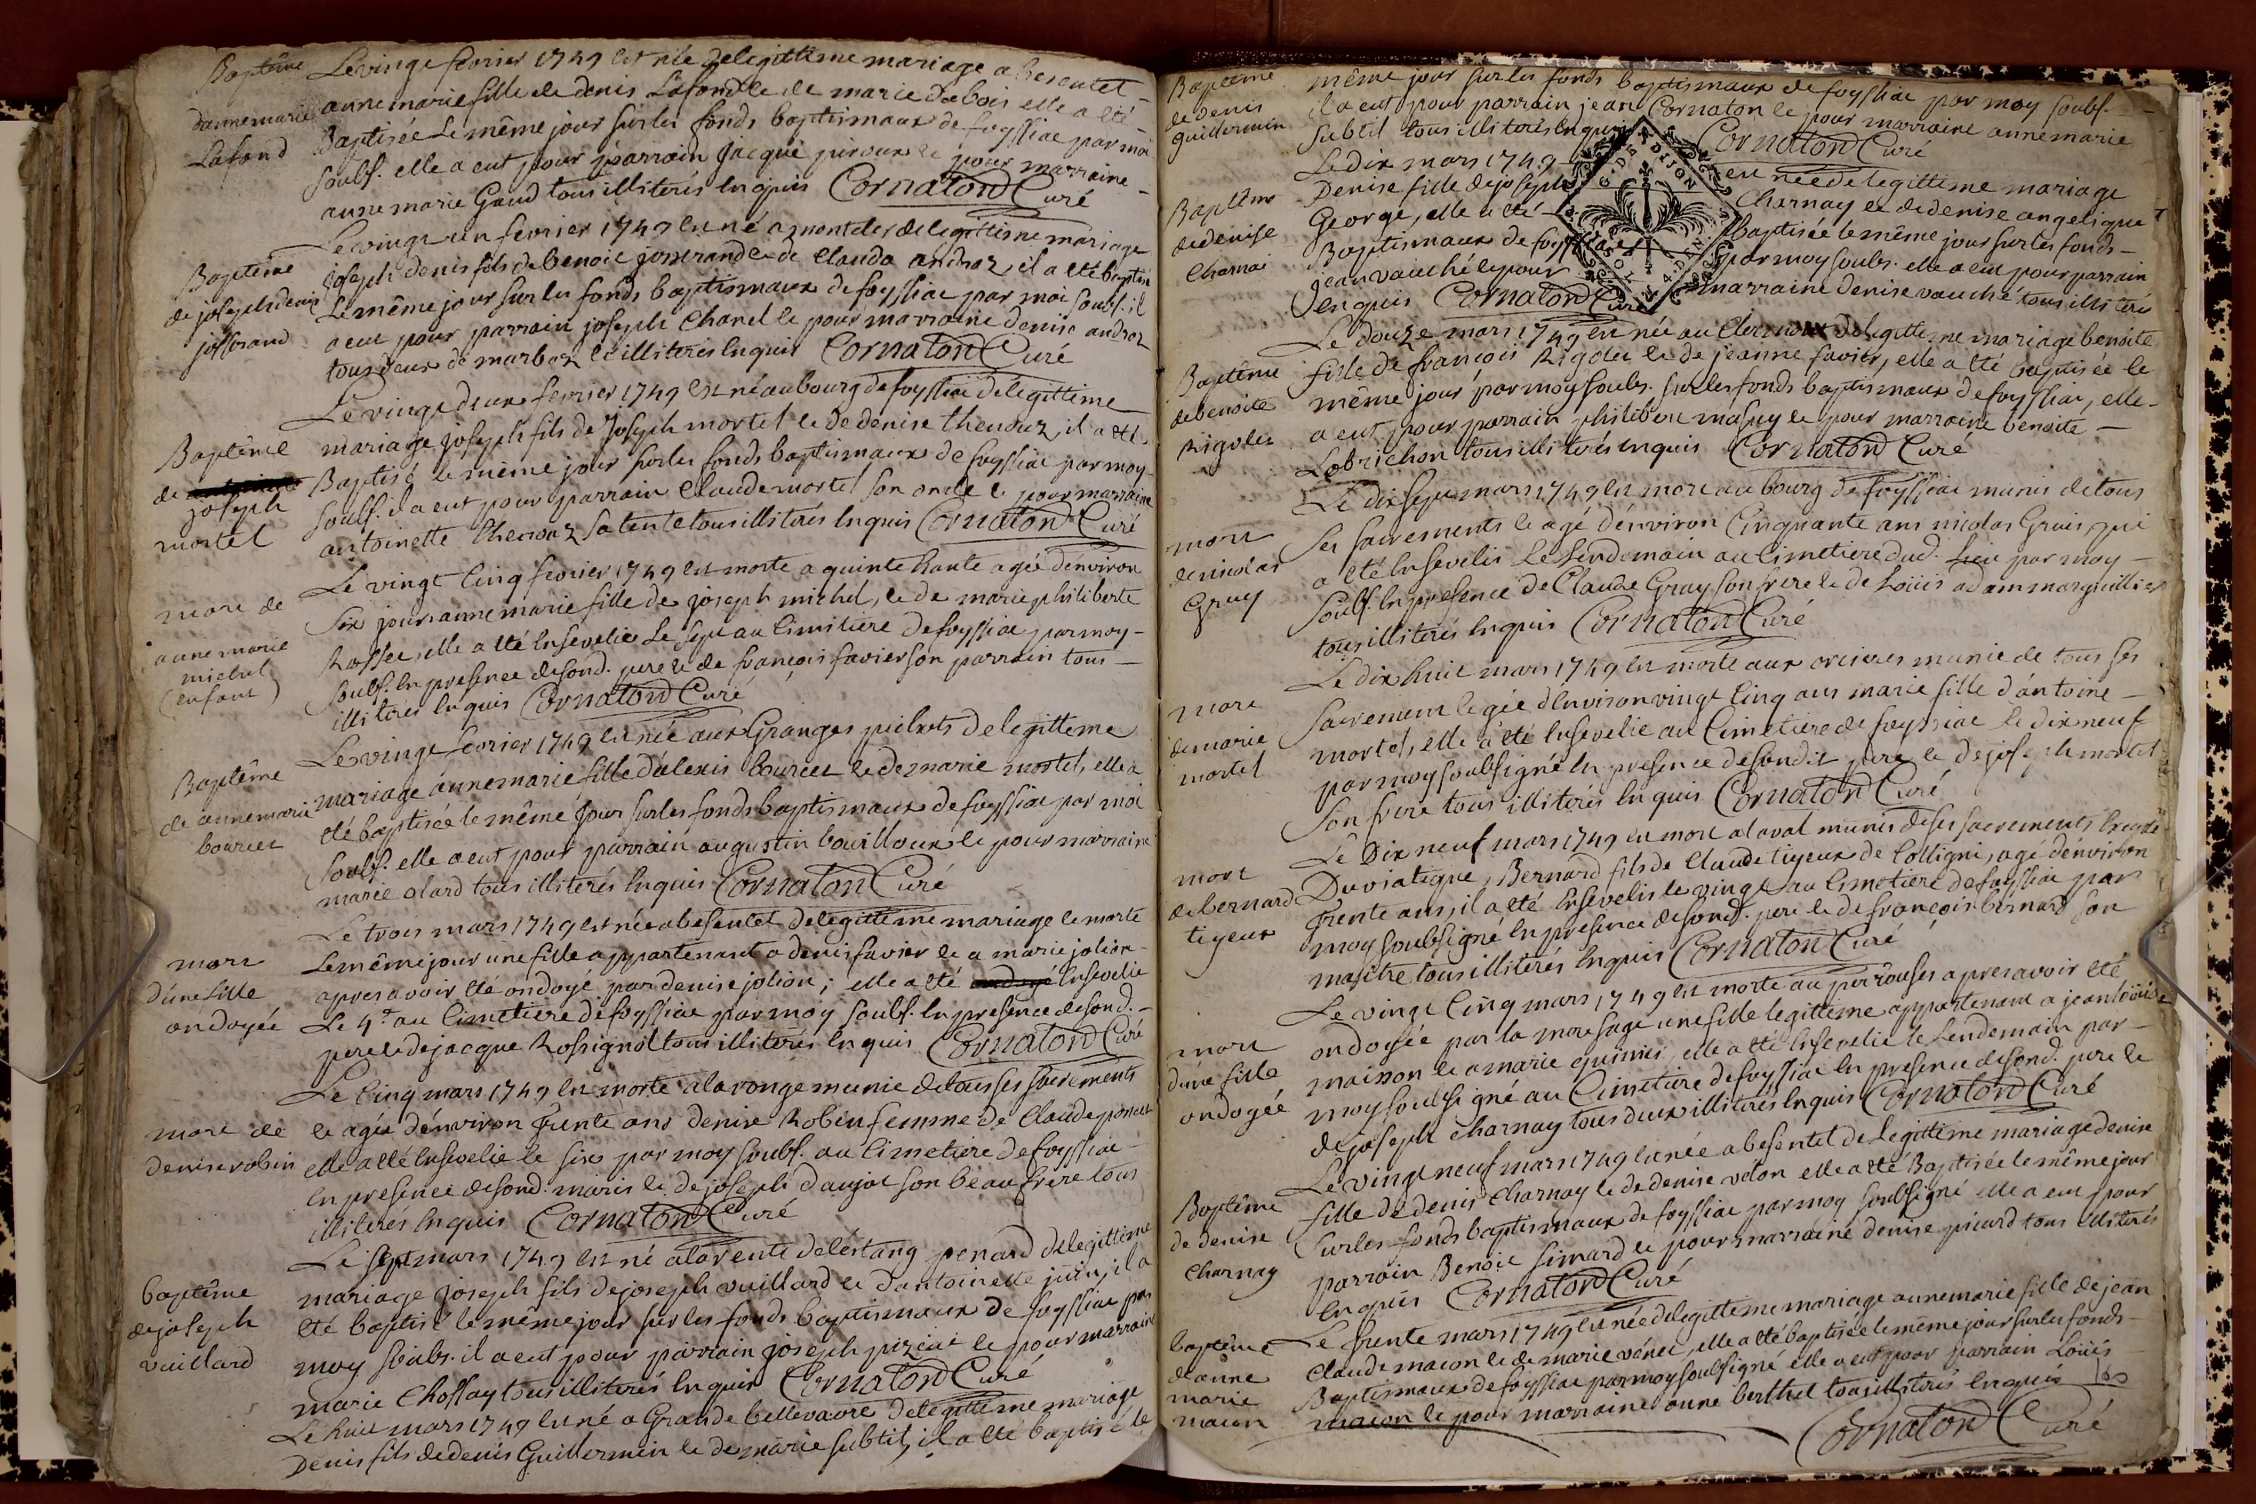 Baptême
d'annemarie
Lafond
Le vingt fevrier 1749 est née de legittime mariage a Besentet
anne marie fille de denis Lafond et de marie dubois elle a été
Baptisée Le même jour sur les fonds baptismaux de foyssiac par moi
soubs. elle a eut pour parrain Jacque piroux et pour marraine
anne marie Gaud tous illiterés enquis Cornaton Curé
Baptême
de joseph denis
josserand
Le vingt un fevrier 1749 est né a montcler de legittime mariage
joseph denis fils de benoit josserand et de Clauda androz il a été baptisé
Le même jour sur les fonds baptismaux de foyssiac par moi soubs. il
a eut pour parrain joseph Chanel et pour marraine denise androz
tous deux de marboz et illiterés enquis Cornaton Curé
Baptême
de
joseph
mortel
Le vingt deux fevrier 1749 est né au bourg de foyssiac de legittime
mariage joseph fils de Joseph mortel et de denise thenoux, il a été
Baptisé le même jour sur les fonds baptismaux de foyssiac par moy
soubs. il a eut pour parrain Claude mortel son oncle et pour marraine
antoinette thenoz sa tente tous illiterés enquis Cornaton Curé
mort de
anne marie
michel
(enfant)
Le vingt cinq fevrier 1749 est morte a quinte haute agée d'environ
six jours anne marie fille de joseph michel, et de marie philiberte
Rosset, elle a été ensevelie Le sept au Cimitiere de foyssiac par moy
soubs. en presence de sond. pere et de françois favier son parrain tous
illiterés enquis Cornaton Curé
Baptême
de annemarie
bourcet
Le vingt fevrier 1749 est née aux Granges pichots de legittime
mariage anne marie fille d'alexis bourcet et de marie mortel, elle a
été baptisée le même Jour sur les fonds baptismaux de foyssiac par moi
soubs. elle a eut pour parrain augustin bouilloux et pour marraine
marie olard tous illiterés enquis Cornaton Curé
mort
d'une fille
ondoyée
Le trois mars 1749 est née a besentet de legittime mariage et morte
Le même jour une fille appartenant a denis favier et a marie jolion
apres avoir été ondoyé par denise jolion; elle a été ensevelie
Le 4e au Cimetiere de foyssiac par moy soubs. en presence de sond.
pere et de jacque Rossignol tous illiterés enquis Cornaton Curé
mort de
denise robin
Le Cinq mars 1749 est morte a la ronge munie de tous ses sacrements
et agée d'environ trente ans denise Robin femme de Claude poncet
elle a été ensevelie le six par moy soubs. au Cimetiere de foyssiac
en presence de sond. maris et de joseph daujat son beau frere tous
illiterés enquis Cornaton Curé
baptême
de joseph
vuillard
Le sept mars 1749 est né a la vente de l'estang penard de legittime
mariage joseph fils de joseph vuillard et d'antoinette juin, il a
été baptisé le même jour sur les fonds baptismaux de foyssiac par
moy soubs. il a eut pour parrain joseph pizeat et pour marraine
marie Chossay tous illiterés enquis Cornaton Curé
Le huit mars 1749 est né a Grande bellevavre de legittime mariage
Denis fils de denis Guillermin et de marie subtil, il a été baptisé le
Baptême
de denis
guillermin
même jour sur les fonds baptismaux de foyssiac par moy soubs.
il a eut pour parrain jean Cornaton et pour marraine anne marie
subtil tous illiterés enquis Cornaton Curé
Baptême
de denise
Charnai
Le dix mars 1749 est née de legittime mariage
Denise fille de joseph Charnay et de denise angelique
George, elle a été baptisée le même jour sur les fonds
Baptismaux de foyssiac par moy soubs. elle a eut pour parrain
jean vauché et pour marraine denise vauché tous illiterés
enquis Cornaton Curé
G. DE DIJON
Baptême
de benoite
Rigolet
Le douze mars 1749 est née au Clermont de legittime mariage benoite
fille de françois Rigolet et de jeanne favier, elle a été baptisée le
même jour par moy soubs. sur les fonds baptismaux de foyssiac, elle
a eut pour parrain philibert masuy et pour marraine benoite
Lobrichon tous illiterés enquis Cornaton Curé
mort
de nicolas
Gruy
Le dix sept mars 1749 est mort au bourg de foyssiac munis de tous
ses sacrements et agé d'environ Cinquante ans nicolas Gruis, qui
a été ensevelis Le lendemain au Cimetiere dud. lieu par moy
soubs. en presence de Claude Gray son frere et de Loüis adam marguillier
tous illiterés enquis Cornaton Curé
mort
de marie
mortel
Le dix huit mars 1749 est morte aux orcieres munie de tous ses
sacrement et agée d'environ vingt cinq ans marie fille d'antoine
mortel, elle a été ensevelie au Cimetiere de foyssiac le dix neuf
par moy soubsigné en presence de sondit pere et de joseph mortel
son frere tous illiterés enquis Cornaton Curé
mort
de bernard
tigeux
Le Dix neuf mars 1749 est mort a laval munis de ses sacrements excepté
Du viatique, Bernard fils de Claude tigeux de Colligni, agé d'environ
trente ans, il a été ensevelis le vingt au Cimetiere de foyssiac par
moy soubsigné en presence de sond. pere et de françois bernard son
maitre tous illiterés enquis Cornaton Curé
mort
d'une fille
ondoyée
Le vingt Cinq mars 1749 est morte au perrouses apres avoir été
ondoyée par la mere sage une fille legittime appartenant a jean loüis
maisson et a marie quinier, elle a été ensevelie le lendemain par
moy soubsigné au Cimetiere de foyssiac en presence de sond. pere et
de joseph Charnay tous deux illiterés enquis Cornaton Curé
Baptême
de denise
Charnay
Le vingt neuf mars 1749 est née a besentet de Legittime mariage denise
fille de denis Charnay et de denise velon elle a été Baptisée le même jour
sur les fonds baptismaux de foyssiac par moy soubsigné elle a eut pour
parrain Benoit simard et pour marraine denise picard tous illiterés
enquis Cornaton Curé
baptême
d'anne
marie
macon
Le trente mars 1749 est née de legittime mariage anne marie fille de jean
Claude macon et de marie vénet, elle a été baptisée le même jour sur les fonds
Baptismaux de foyssiac par moy soubsigné elle a eut pour parrain Loüis
macon et pour marraine anne berthet tous illiterés enquis
Cornaton Curé